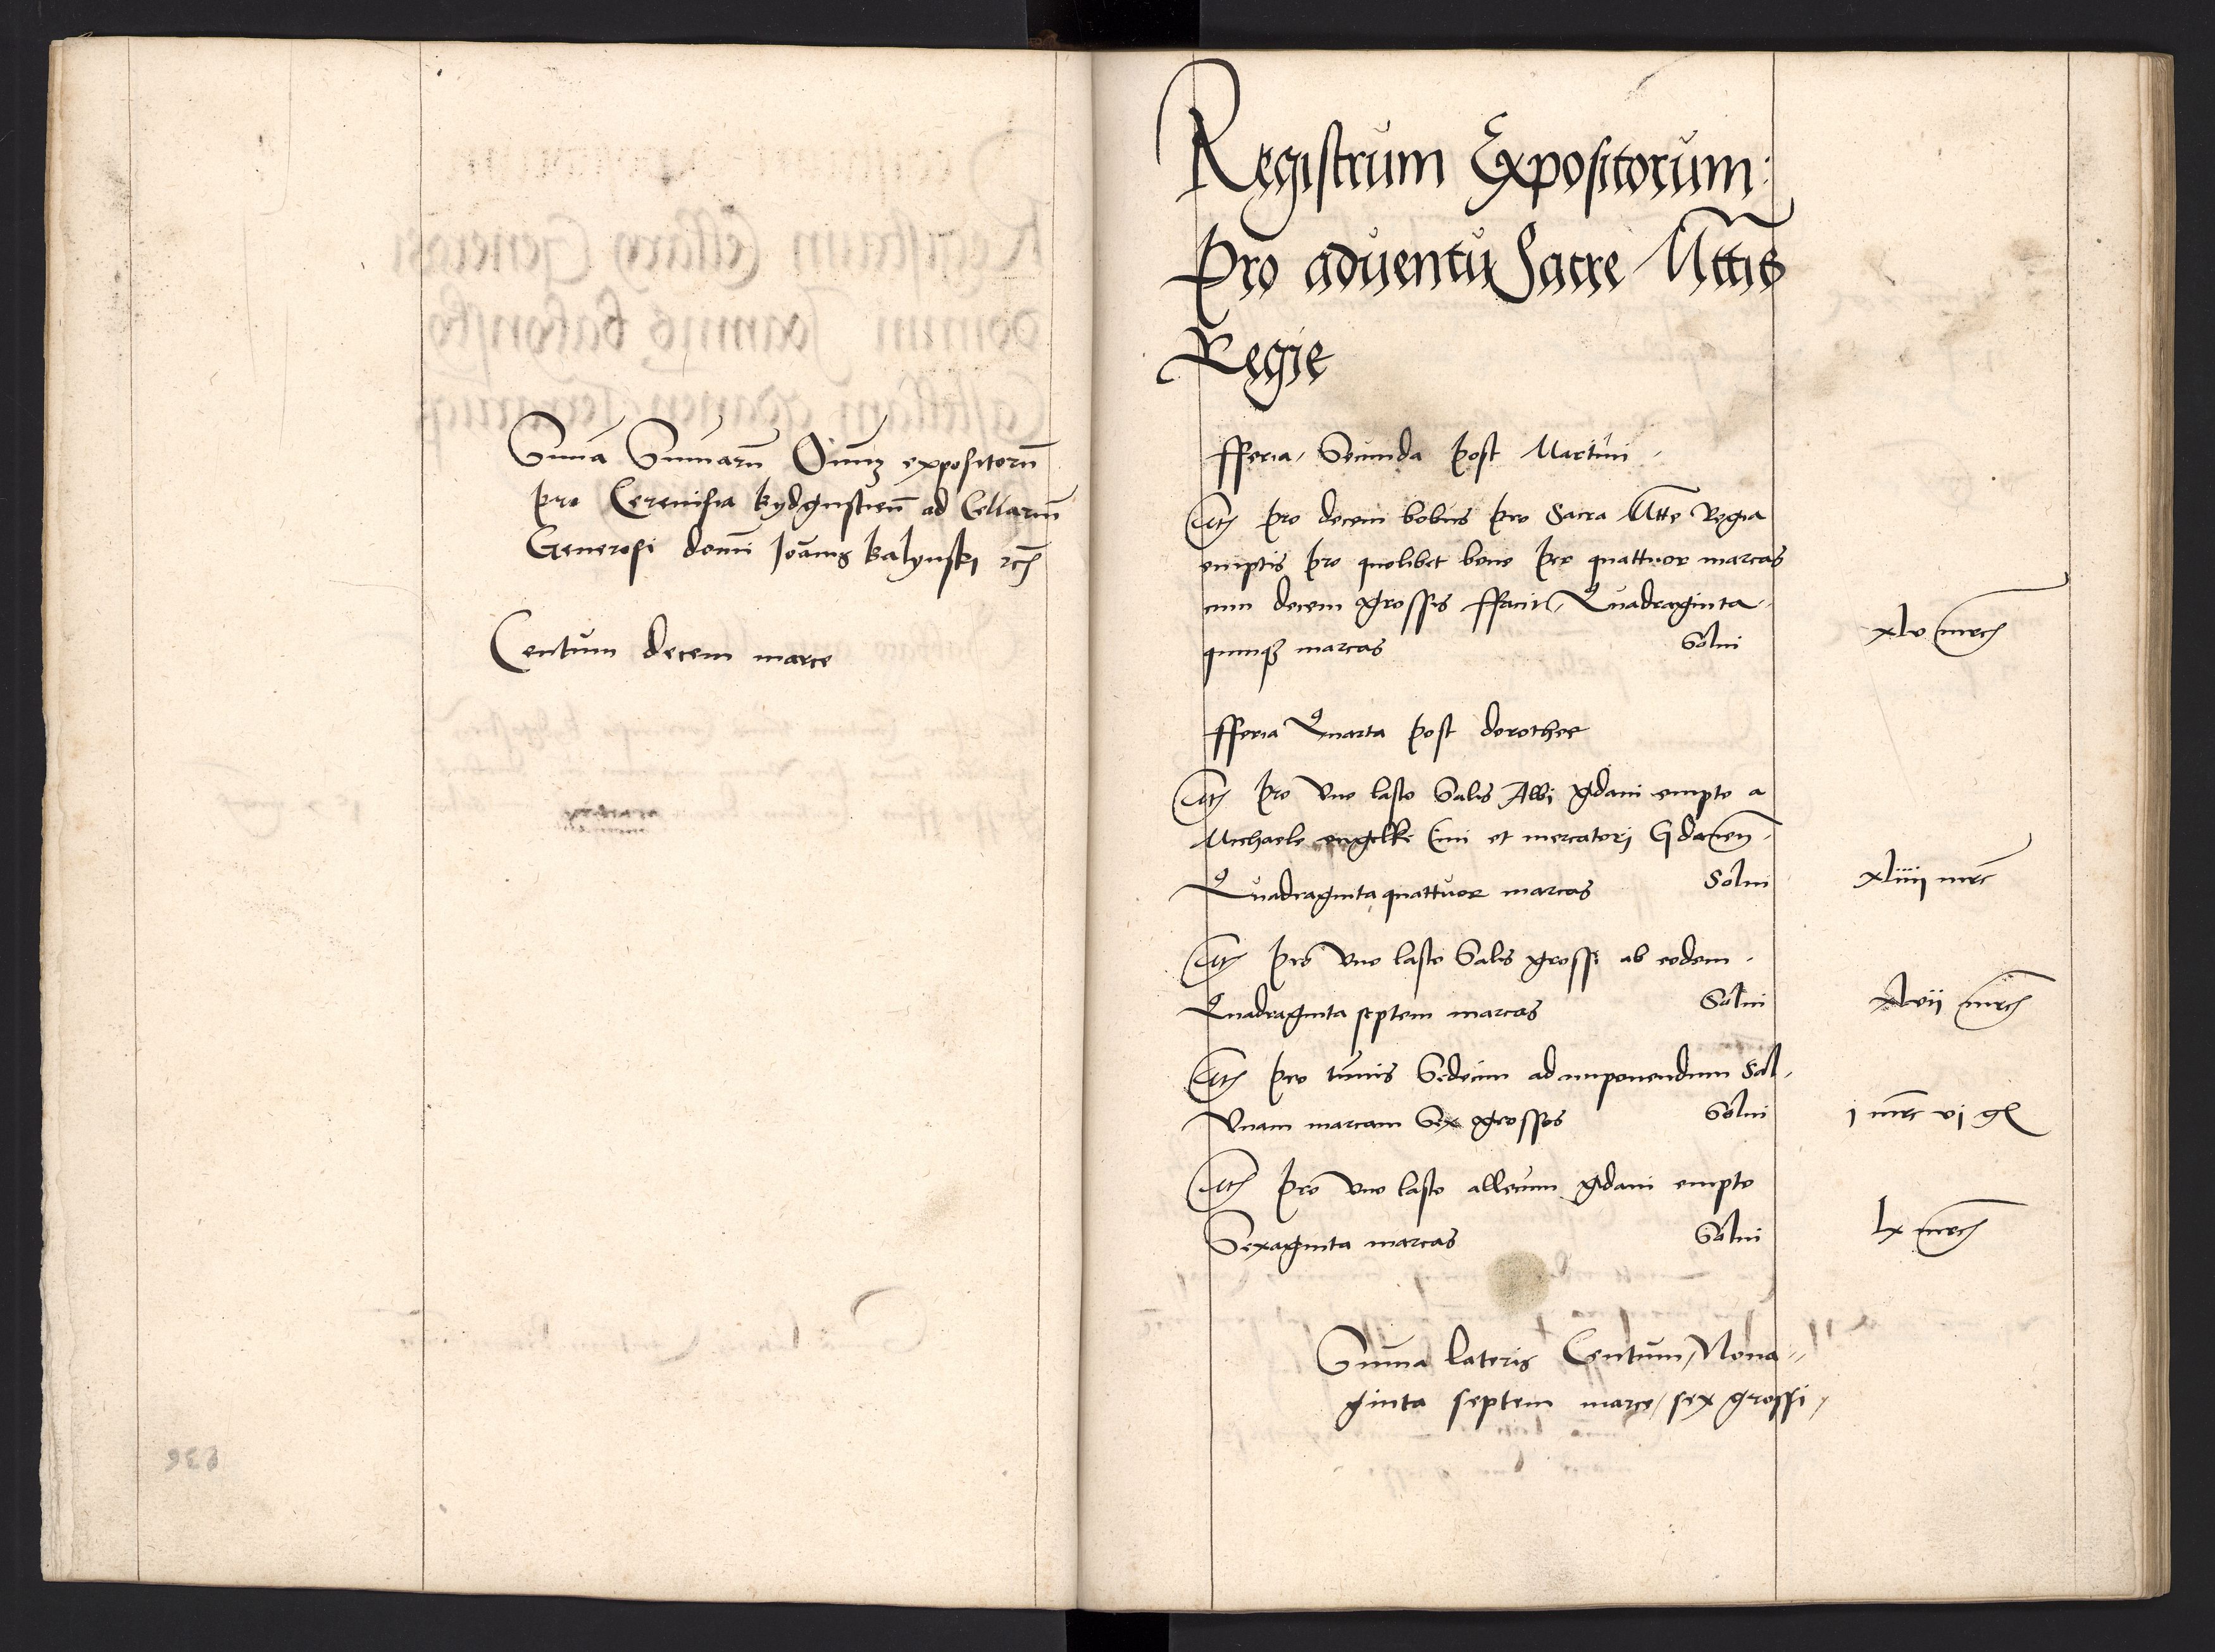 Suma Sumaru Oium expositoru
pro Cerevisia bydgustien ad Cellariu
Generosi domi Joanis balynski etc
Centum decem marce
Registrum Expositorum:
Pro adventu Sacre Mttis
Regie
fferia Secunda post Martini
Item pro decem bobus pro Sacra Mtte Regia
emptis pro quolibet bove per quattuor marcas
cum decem grossis ffacit Quadraginta
quinque marcas Solui xlv mrc
fferia Quarta post dorothee
Item pro uno lasto Salis Albi gdani empto a
Michaele engelke Civi et mercatori Gdanen
Quadraginta quattuor marcas Solui xliiij mrc
Item pro uno lasto Salis grossi ab eodem
Quadraginta septem marcas Solui xlvii mrc
Item pro tunnis Sedecim ad imponendum Sal
Unam marcam Sex grossos Solui j mrc vj gs
Item pro uno lasto allecum gdani empto
Sexaginta marcas Solui lx mrc
Suma lateris Centum Nona
ginta septem marce sex grossi